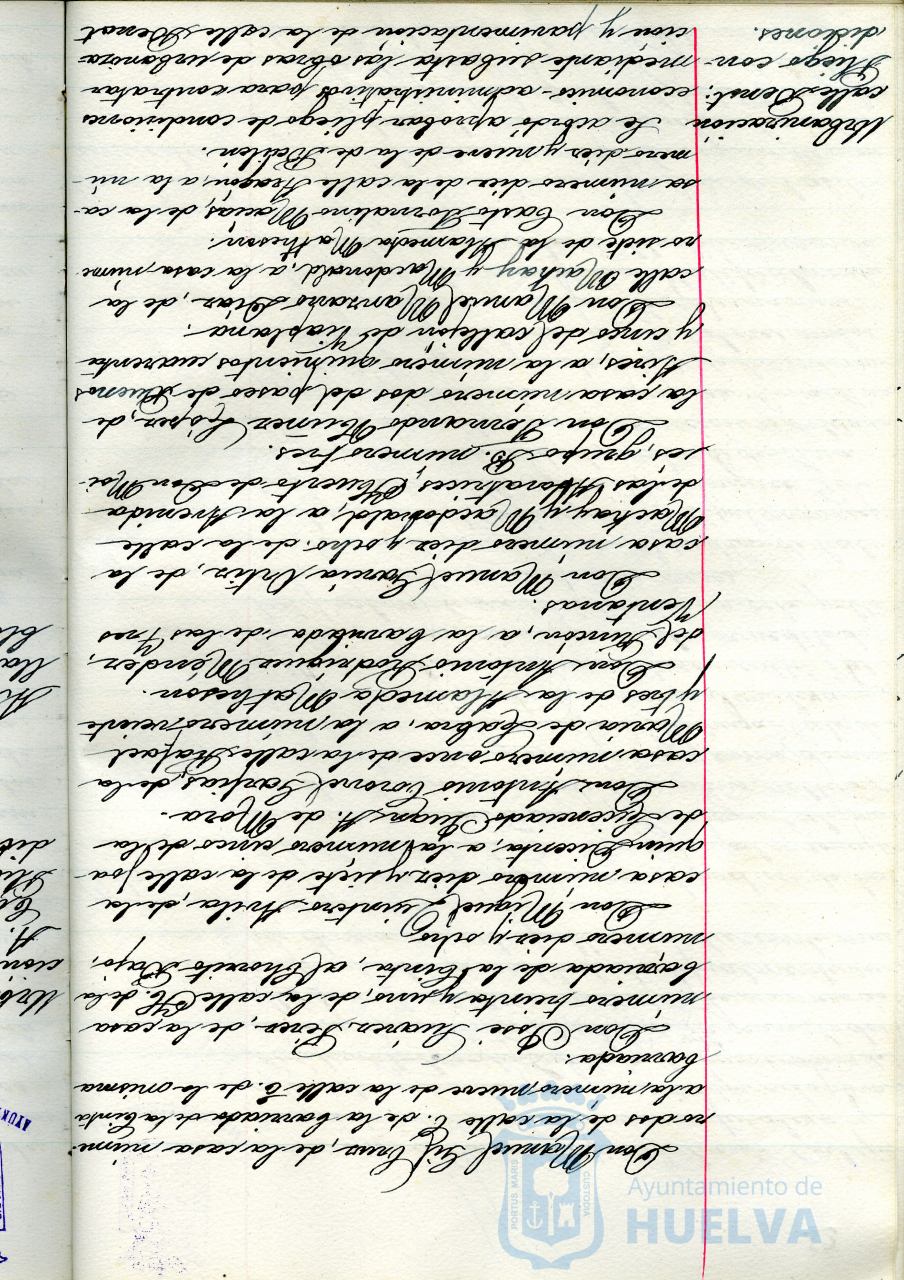 Don Manuel Gil Cruz, de la casa núme-
ro dos de la calle C. de la barriada de la Cinta
a la número nueve de la calle E. de la misma
barriada.
Don José Suárez Pérez, de la casa
número treinta y uno, de la calle H. de la
barriada de la Cinta, al Chorrito Bajo,
número diez y ocho
Don Miguel Quintero Avila, de la
casa, número diez y siete de la calle Joa-
quin Dicenta, a la número cinco de la
de Licenciado Juan A. de Mora.
Don Antonio Coronel Garfias, de la
casa número once de la calle Rafael
María de Labra, a la número veinte
y tres de la Alameda Matheson.
Don Antonio Rodríguez Méndez,
del Rincón, a la barriada de las Tres
Ventanas.
Don Manuel García Ortiz, de la
casa, número diez y ocho de la calle
Mackay y Macdonald, a la Avenida
de las Adoratrices, Huerto de Don Moi-
ses, grupo B. número tres.
Don Fernando Núñez López, de
la casa número dos del paseo de Buenos
Aires, a la número quinientos cuarenta
y cinco del callejón de Viaplana.
Don Manuel Manzano Díaz, de la
calle Mackay y Macdonald, a la casa, núme
ro siete de la Alameda Matheson.
Don Casto Tornalino Macías, de la ca-
sa número diez de la calle Aragón, a la nú-
mero diez y nueve de la de Bailén.
Urbanización
calle Denat:
Pliego con-
diciones.
Se acordó aprobar pliego de condiciones
economico-administrativas para contratar
mediante subasta las obras de urbaniza-
ción y pavimentación de la calle Denat
Ayuntamiento de
HUELVA
PORTUS MARIS
CUSTODIA